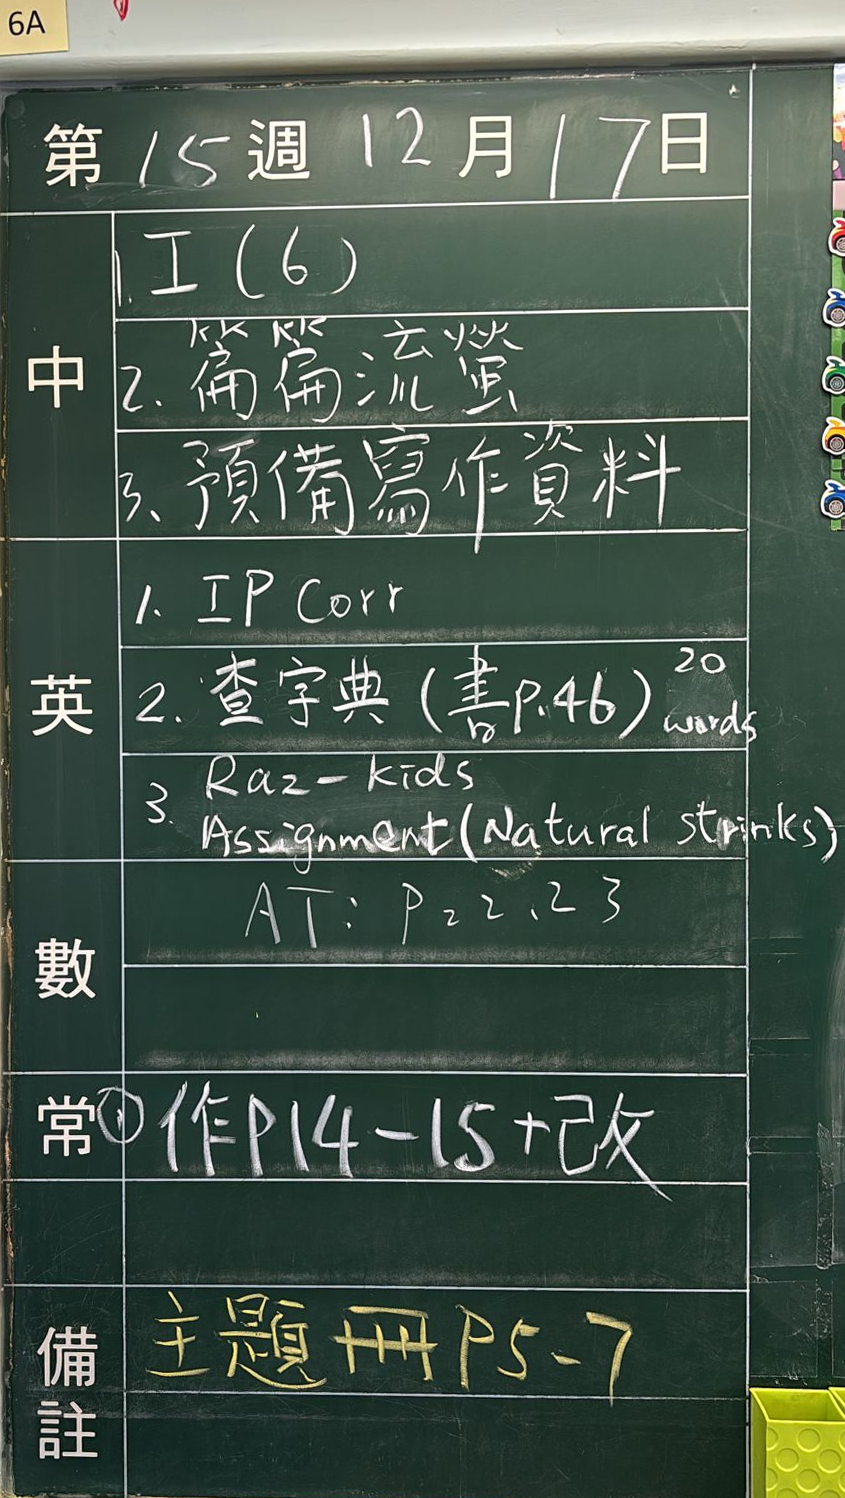 6A
第 15 週 12 月 17 日
中
1. 工 (6)
2. 篇篇流螢
3. 預備寫作資料
英
1. IP Corr
2. 查字典 (書p.46) 20 words
3. Raz-kids
Assignment (Natural strinks)
數
AT: P.22、23
常
① 作P14-15+改
備註
主題冊P5-7